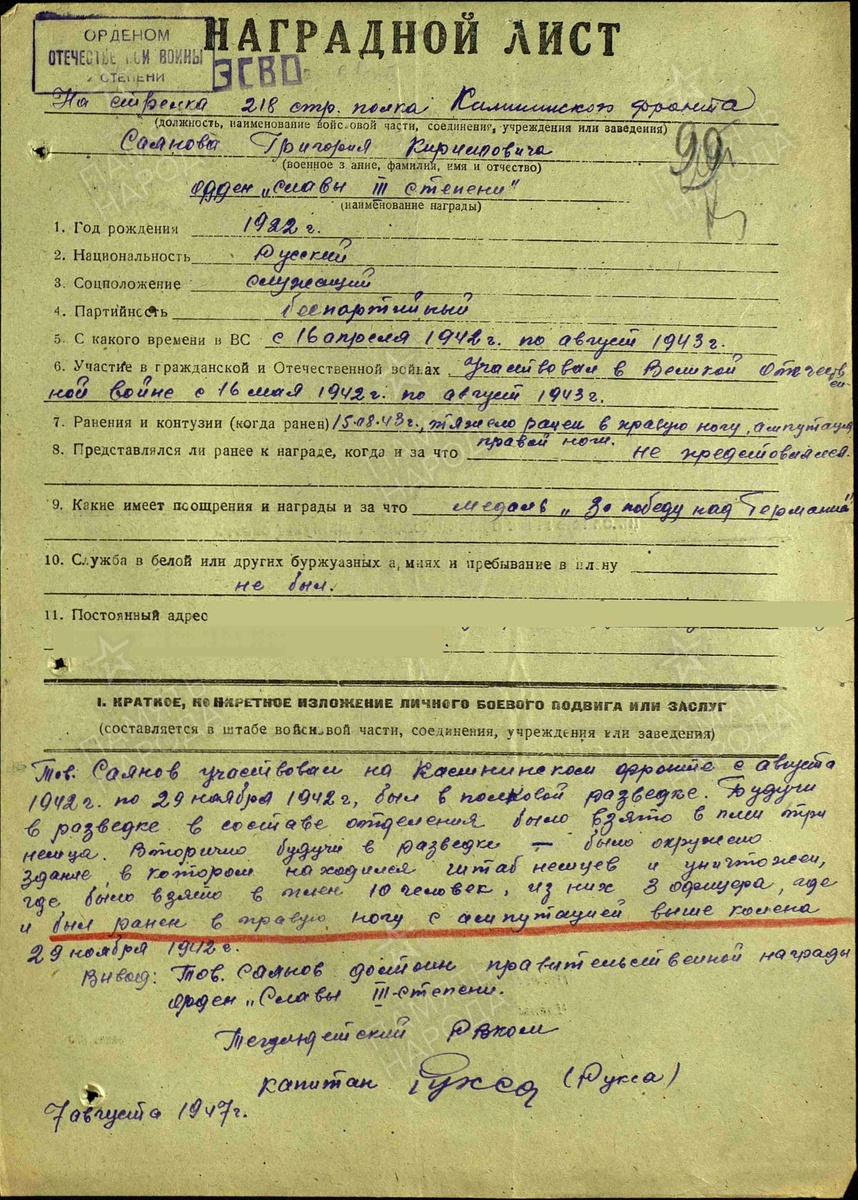 ОРДЕНОМ
ОТЕЧЕСТВЕННОЙ ВОЙНЫ
СТЕПЕНИ
НАГРАДНОЙ ЛИСТ
На стрелка 218 стр. полка Калининского фронта
(должность, наименование войсковой части, соединения, учреждения или заведения)
Саянова Григория Кирилловича
(военное звание, фамилия, имя и отчество)
99
орден „Славы III степени"
(наименование награды)
1. Год рождения 1922 г.
2. Национальность Русский
3. Соцположение служащий
4. Партийность беспартийный
5. С какого времени в ВС с 16 апреля 1942 г. по август 1943 г.
6. Участие в гражданской и Отечественной войнах Участвовал в Великой Отечествен-
ной войне с 16 мая 1942 г. по август 1943 г.
7. Ранения и контузии (когда ранен) 15.08.43 г., тяжело ранен в правую ногу, ампутация
правой ноги.
8. Представлялся ли ранее к награде, когда и за что не представлялся.
9. Какие имеет поощрения и награды и за что медаль „За победу над Германией"
10. Служба в белой или других буржуазных армиях и пребывание в плену
не был.
11. Постоянный адрес
I. КРАТКОЕ, КОНКРЕТНОЕ ИЗЛОЖЕНИЕ ЛИЧНОГО БОЕВОГО ПОДВИГА ИЛИ ЗАСЛУГ
(составляется в штабе войсковой части, соединения, учреждения или заведения)
Тов. Саянов участвовал на Калининском фронте с августа
1942 г. по 29 ноября 1942 г., был в полковой разведке. Будучи
в разведке в составе отделения было взято в плен три
немца. Вторично будучи в разведке – было окружено
здание, в котором находился штаб немцев и уничтожен,
где было взято в плен 10 человек, из них 3 офицера, где
и был ранен в правую ногу с ампутацией выше колена
29 ноября 1942 г.
Вывод: Тов. Саянов достоин правительственной награды
орден „Славы III-степени.
Тегульдетский РВком
капитан (Рукса)
7 августа 1947 г.